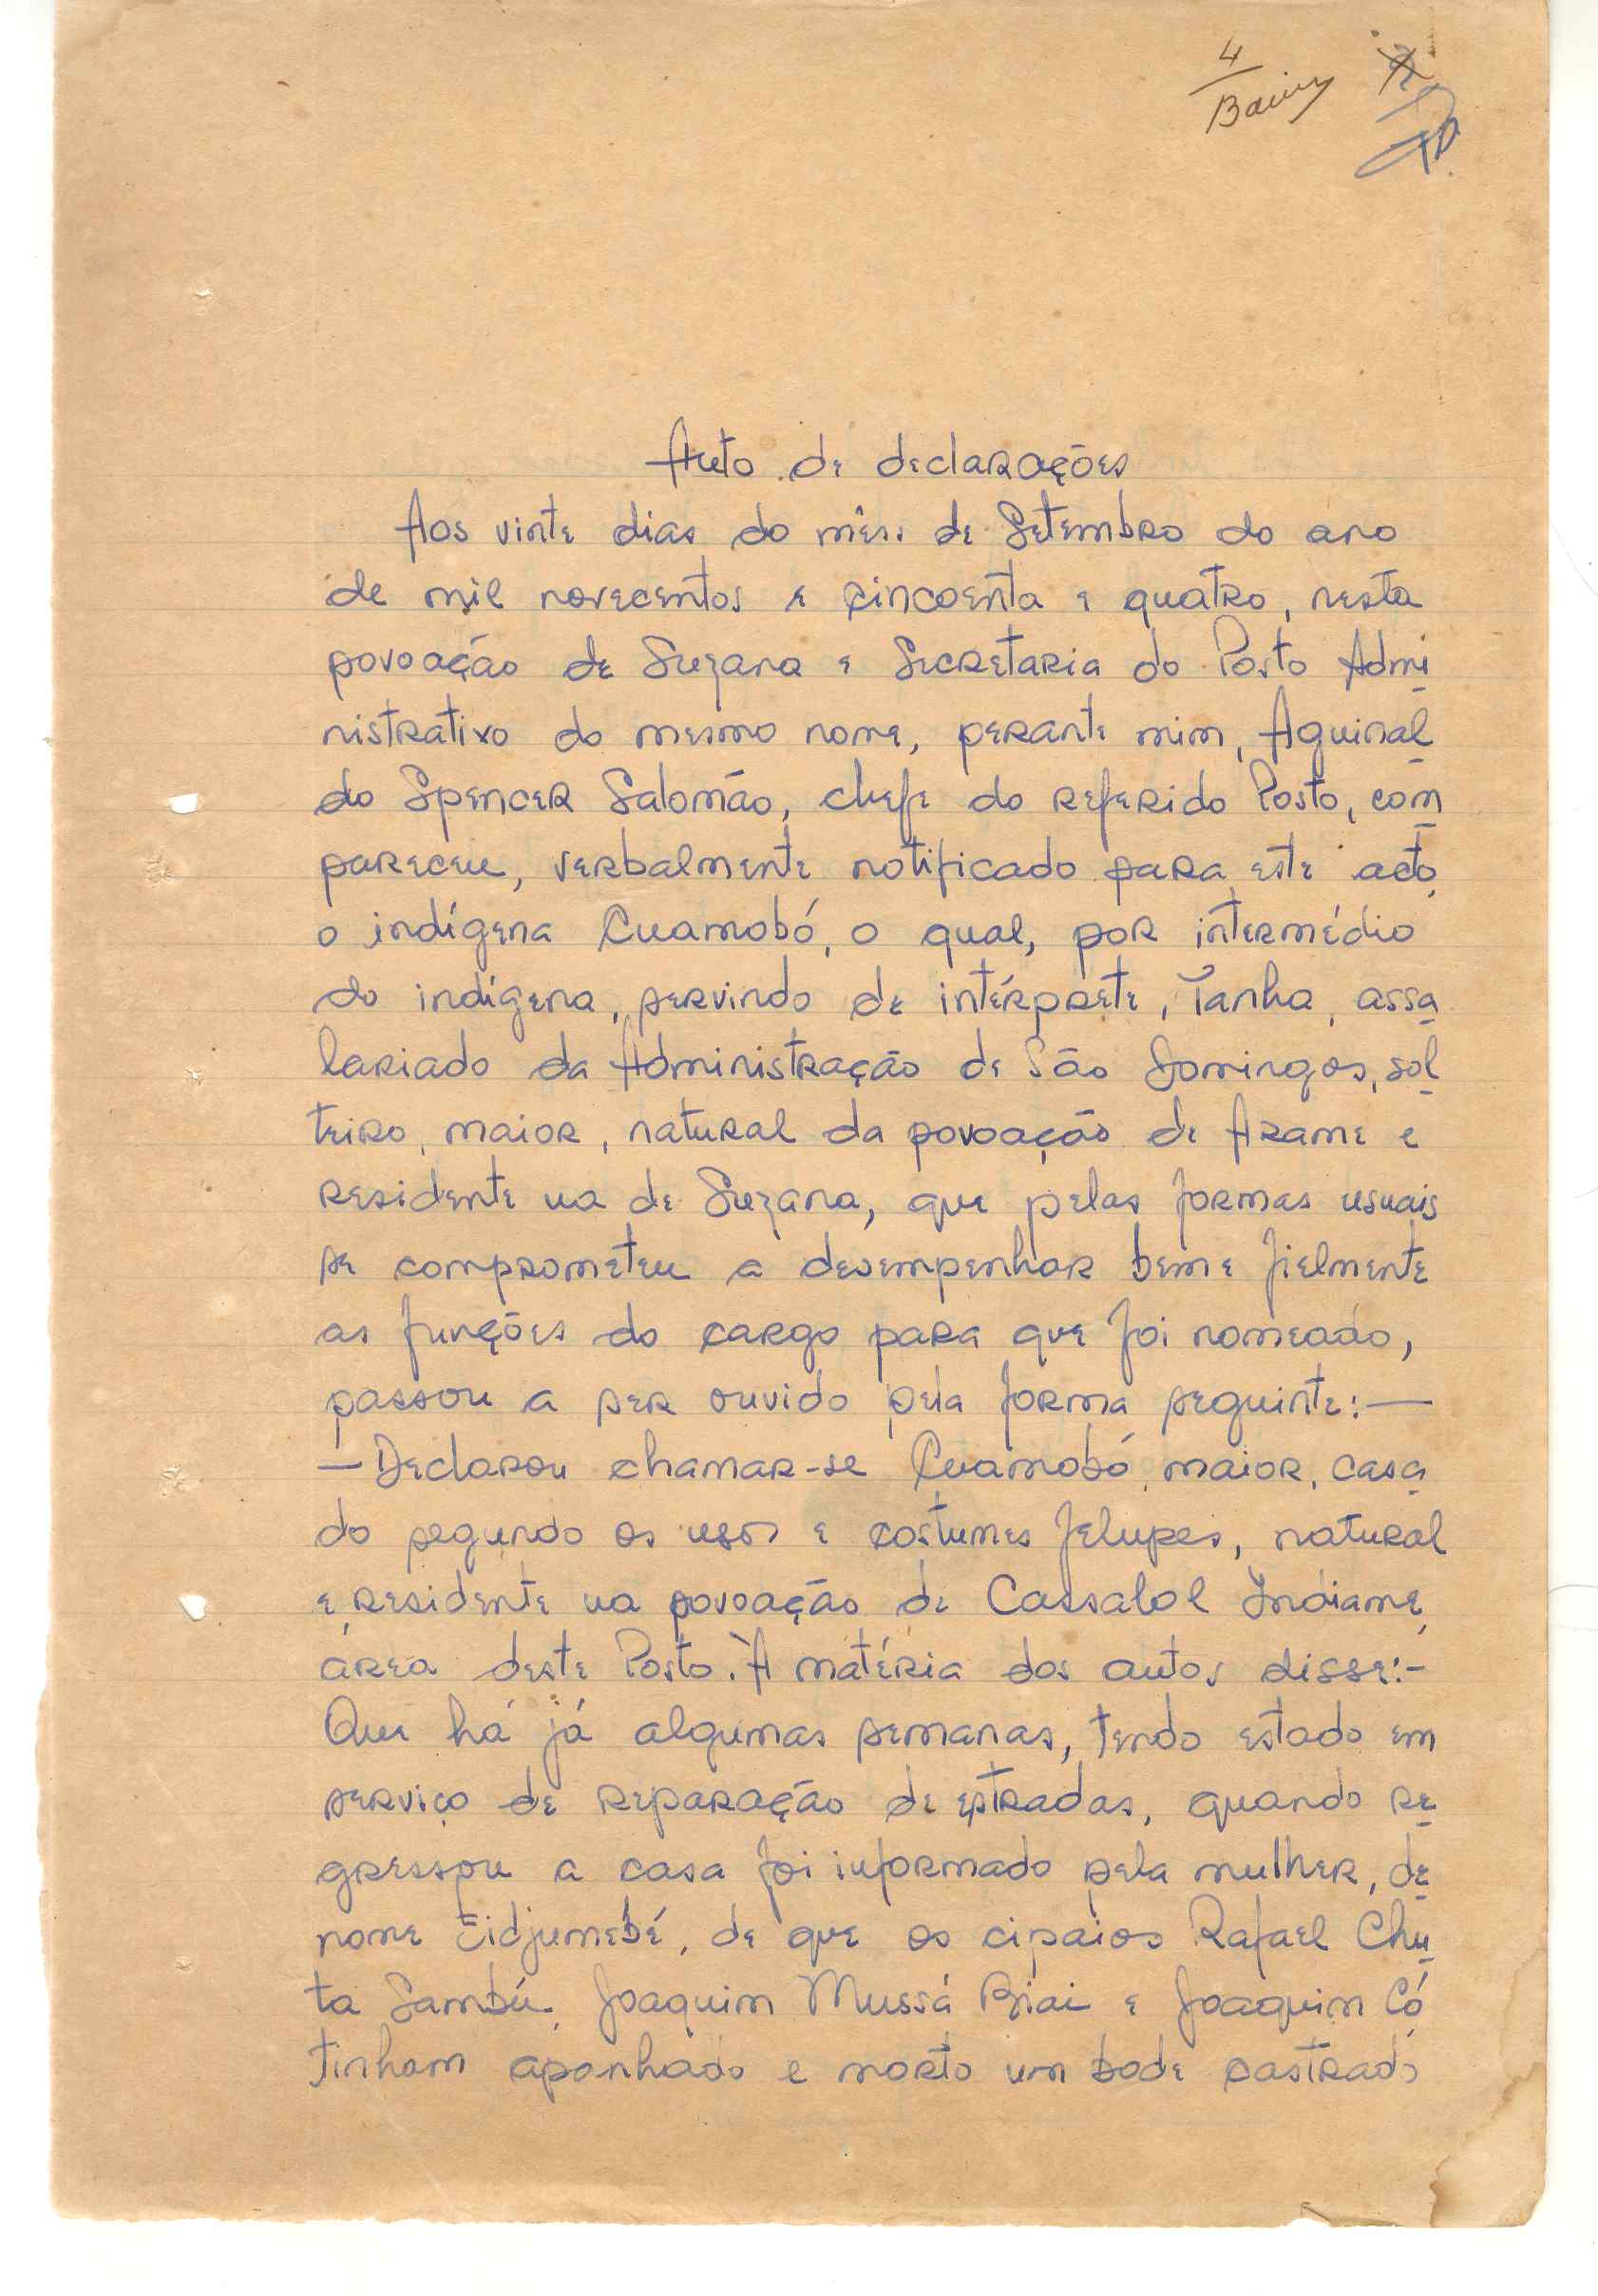 4
Auto de declarações
Aos vinte dias do mês de Setembro do ano
de mil novecentos e cincoenta e quatro, nesta
povoação de Suzana e Secretaria do Posto Admi
nistrativo do mesmo nome, perante mim, Aguinal
do Spencer Salomão, chefe do referido Posto, com
pareceu, verbalmente notificado para este acto,
o indígena Cuamobó, o qual, por intermédio
do indígena, servindo de intérprete, Tanha, assa
lariado da Administração de São Domingos, sol
teiro, maior, natural da povoação de Arame e
residente na de Suzana, que pelas formas usuais
se comprometeu a desempenhar bem e fielmente
as funções do cargo para que foi nomeado,
passou a ser ouvido pela forma seguinte:—
—Declarou chamar-se Cuamobó, maior, casa
do segundo os usos e costumes felupes, natural
e residente na povoação de Cassalol Indiame,
área deste Posto. À matéria dos autos disse:-
Que há já algumas semanas, tendo estado em
serviço de reparação de estradas, quando re
gressou a casa foi informado pela mulher, de
nome Eidjumebé, de que os cipaios Rafael Chu
ta Sambú, Joaquim Mussá Biai e Joaquim Có,
tinham apanhado e morto um bode castrado